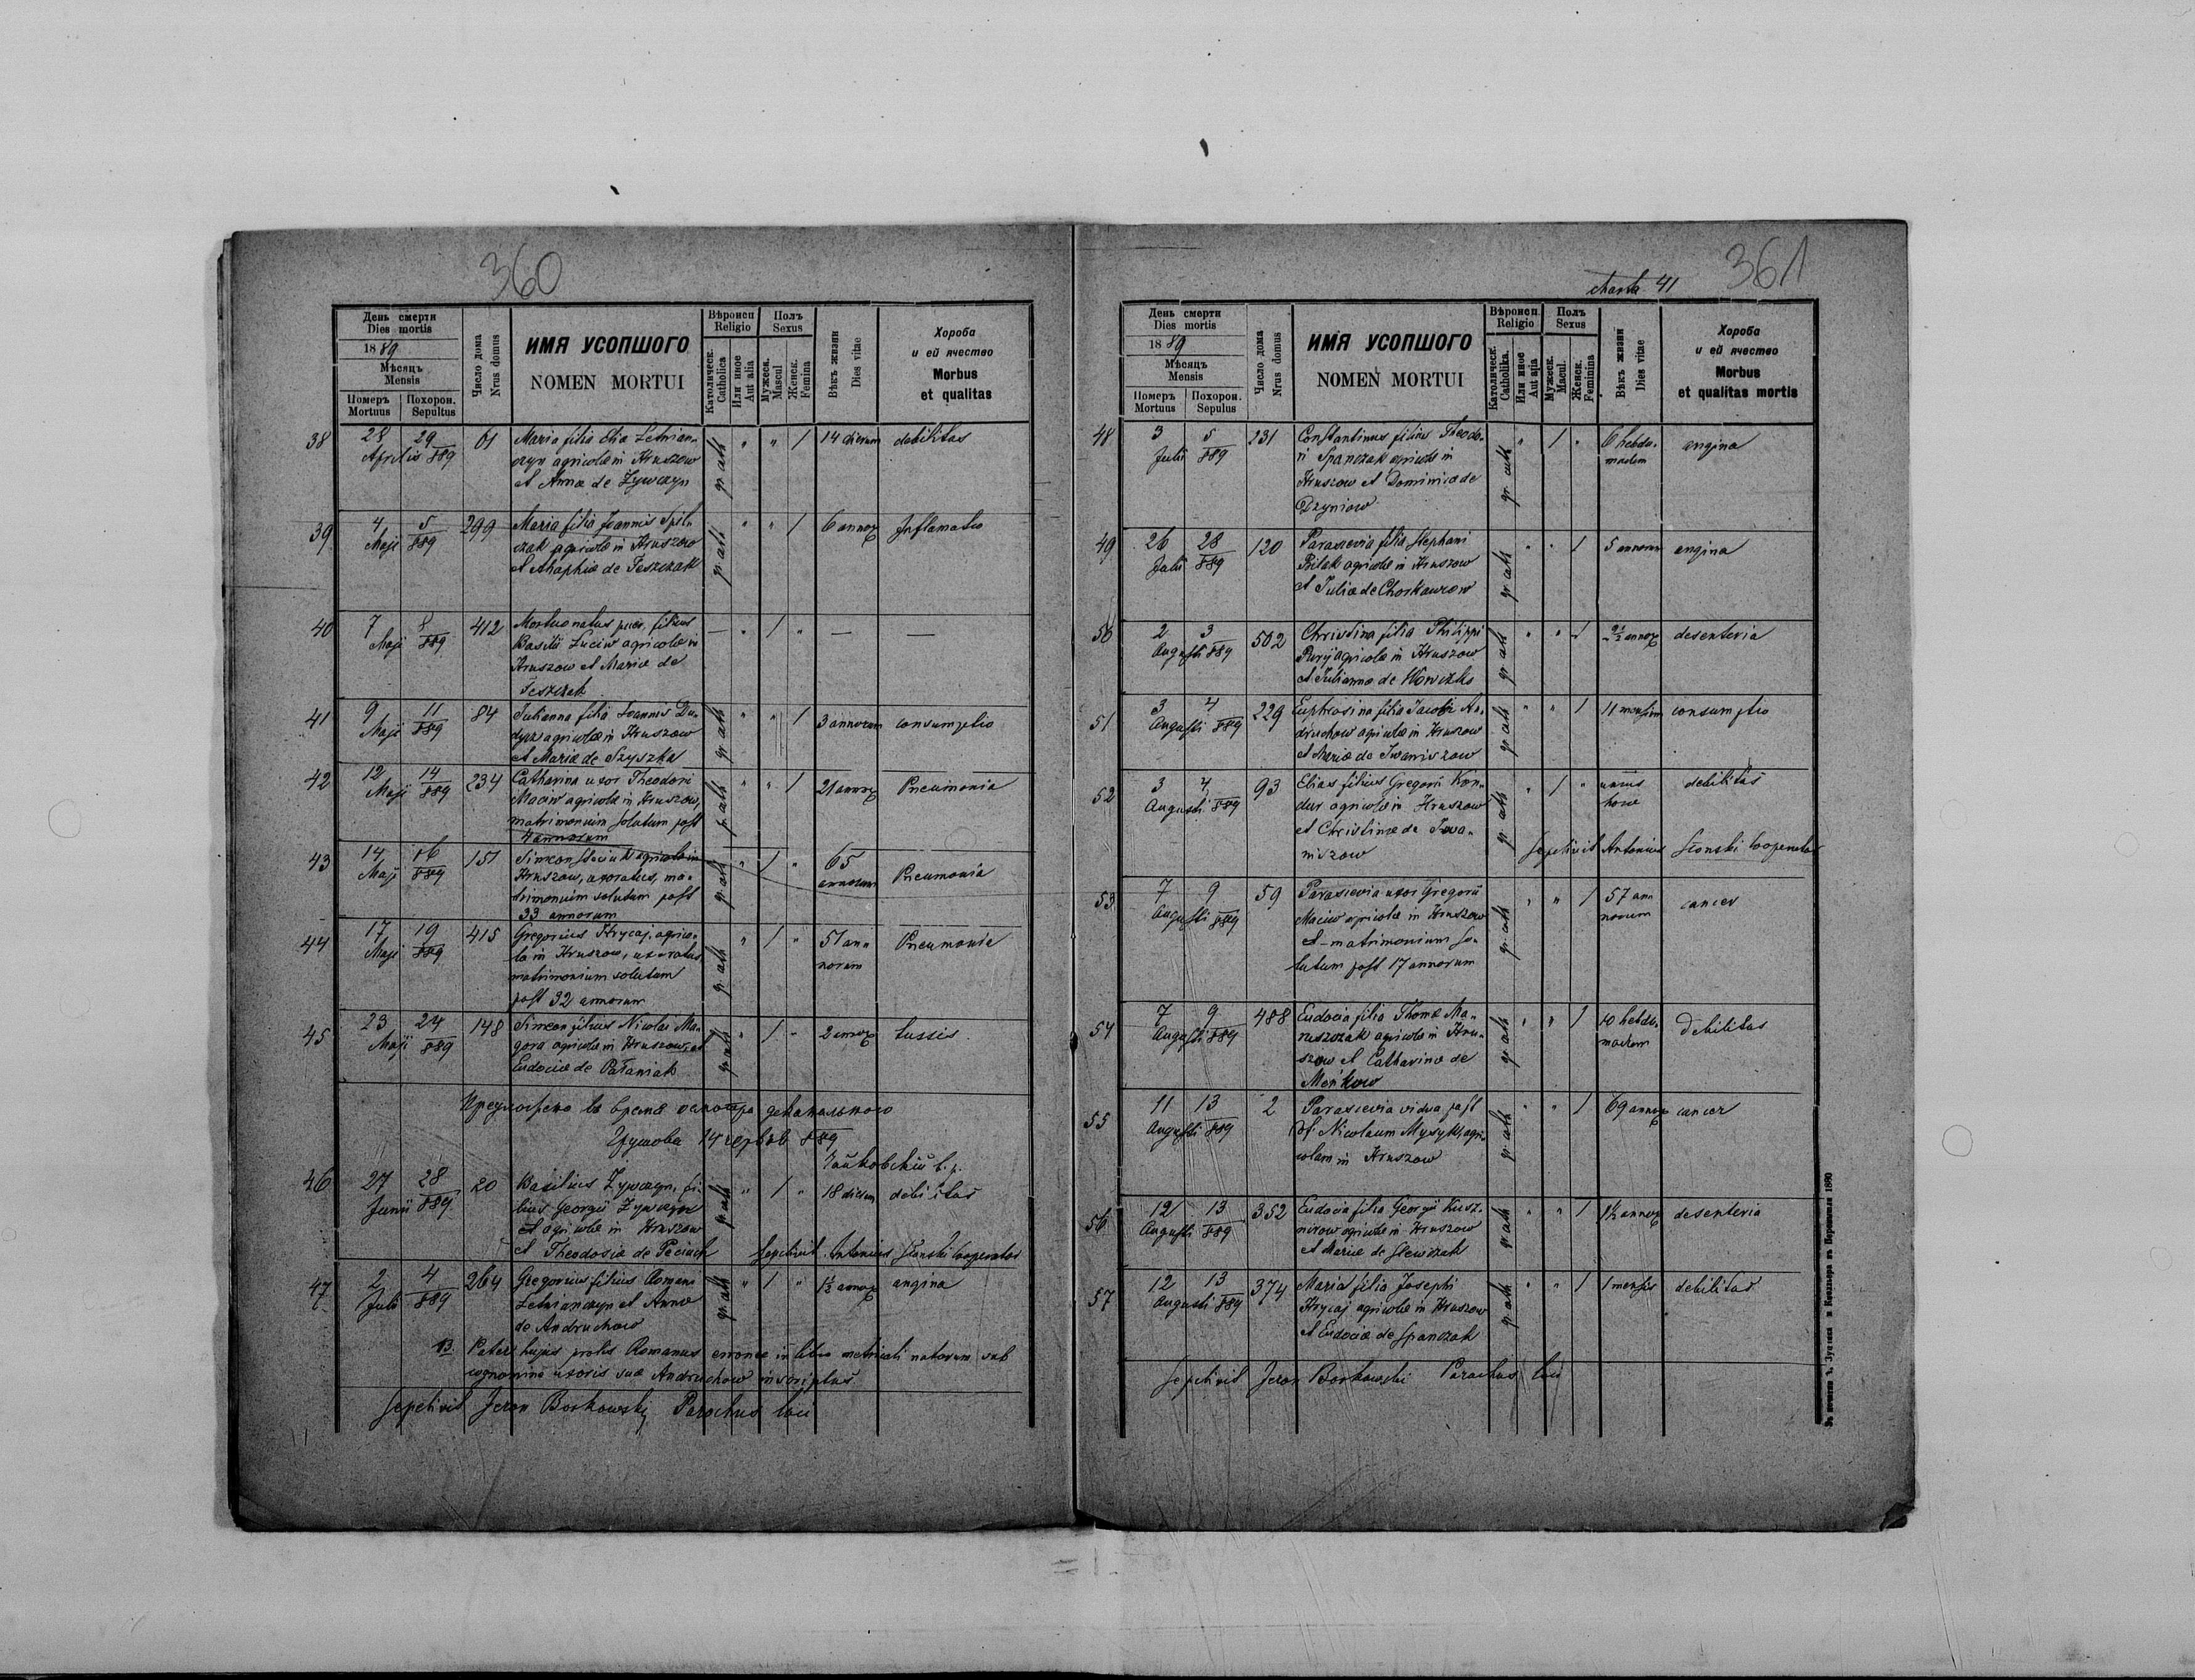 360
День смерти
Dies mortis
1889
Мѣсяцъ
Mensis
Померъ
Mortuus
Похорон.
Sepultus
Число дома
Nrus domus
ИМЯ УСОПШОГО
NOMEN MORTUI
Вѣроисп
Religio
Католическ.
Catholica
Или иное
Aut alia
Полъ
Sexus
Мужеск.
Mascul
Женск.
Femina
Вѣкъ жизни
Dies vitae
Хороба
и ей ячество
Morbus
et qualitas
38 28 29 Aprilis 889 61 Maria filia Eliæ Letnian-
czyn agricolæ in Hruszow
et Annæ de Zywczyn
gr. cath " " 1 14 dierum debilitas
39 4 5 Maji 889 299 Maria filia Joannis Spil-
czak agricolæ in Hruszow
et Ahaphiæ de Teszczak
gr. cath " " 1 6 annor Inflamatio
40 7 8 Maji 889 412 Mortuo natus puer, filius
Basilii Luciw agricolæ in
Hruszow et Mariæ de
Teszczak
— " 1 " — —
41 9 11 Maji 889 84 Julianna filia Joannis Du-
agricolæ in Hruszow
et Mariæ de Szyszka
gr. cath " " 1 3 annorum consumptio
42 12 14 Maji 889 234 Catharina uxor Theodori
Maciw agricolæ in Hruszow,
matrimonium solutum post
4 annorum
gr. cath " " 1 21 annor Pneumonia
43 14 16 Maji 889 151 Simeon agricola in
Hruszow, uxoratus, ma-
trimonium solutum post
33 annorum
gr. cath " 1 " 65
annorum Pneumonia
44 17 19 Maji 889 415 Gregorius Hrycaj, agrico-
la in Hruszow, uxoratus
matrimonium solutum
post 32 annorum
gr. cath " 1 " 51 an-
norum Pneumonia
45 23 24 Maji 889 148 Simeon filius Nicolai Ma-
gora agricolæ in Hruszow et
Eudociæ de Pałaniak
gr. cath " 1 " 2 annor tussis
Предложено въ время деканального
Грушова 14 червня 889
46 27 28 Junii 889 20 Basilius Zywczyn, fi-
lius Georgii Zywczyn
et agricolæ in Hruszow
et Theodosiæ de Peciuch
gr. cath " 1 " 18 dierum debilitas
Sepelivit Antonius Słonski Cooperator
47 2 4 Julii 889 264 Gregorius filius Romani
Letnianczyn et Annæ
de Andruchow
gr. cath " 1 " 1½ annor angina
NB. Pater hujus prolis Romanus erronee in libro metricali natorum sub
cognomine uxoris suæ Andruchow inscriptus
Sepelivit Jeron Borkowsky Parochus loci
charta 41
361
День смерти
Dies mortis
1889
Мѣсяцъ
Mensis
Померъ
Mortuus
Похорон.
Sepulus
Число дома
Nrus domus
ИМЯ УСОПШОГО
NOMEN MORTUI
Вѣроисп
Religio
Католическ.
Catholika.
Или иное
Aut ajia
Полъ
Sexus
Мужеск.
Macul.
Женск.
Feminina
Вѣкъ жизни
Dies vitae
Хороба
и ей ячество
Morbus
et qualitas mortis
48 3 5 Julii 889 231 Constantinus filius Theodo-
ri Spanczak agricolæ in
Hruszow et Dominicæ de
Dzyniow
gr. cath " 1 " 6 hebdo-
madum angina
49 26 28 Julii 889 120 Parascevia filia Stephani
Bilak agricolæ in Hruszow
et Juliæ de Chorkawcow
gr. cath " " 1 5 annorum angina
50 2 3 Augusti 889 502 Christina filia Philippi
Puryj agricolæ in Hruszow
et Juliannæ de
gr. cath " " 1 2½ annor desenteria
51 3 4 Augusti 889 229 Euphrosina filia Jacobi An-
druchow agricolæ in Hruszow
et Mariæ de Iwaniszow
gr. cath " " 1 11 mensium consumptio
52 3 4 Augusti 889 93 Elias filius Gregorii Kon-
dur agricolæ in Hruszow
et Christinæ de Iwa-
niszow
gr. cath " 1 " unius
horæ debilitas
Sepelivit Antonius Słonski Cooperator
53 7 9 Augusti 889 59 Parascevia uxor Gregorii
Maciw agricolæ in Hruszow
et matrimonium so-
lutum post 17 annorum
gr. cath " " 1 57 an
norum cancer
54 7 9 Augusti 889 488 Eudocia filia Thomæ Ma-
ruszczak agricolæ in Hru-
szow et Catharinæ de
Meńkow
gr. cath " " 1 10 hebdo-
madum Debilitas
55 11 13 Augusti 889 2 Parascevia vidua post
Nicolaum Mysyk, agri-
colam in Hruszow
gr. cath " " 1 69 annor cancer
56 12 13 Augusti 889 352 Eudocia filia Georgii Kusz-
nirow agricolæ in Hruszow
et Mariæ de
gr. cath " " 1 1½ annor desenteria
57 12 13 Augusti 889 374 Maria filia Josephi
Hrycaj agricolæ in Hruszow
et Eudociæ de Spanczak
gr. cath " " 1 1 mensis debilitas
Sepelivit Jeron Borkowski Parochus loci